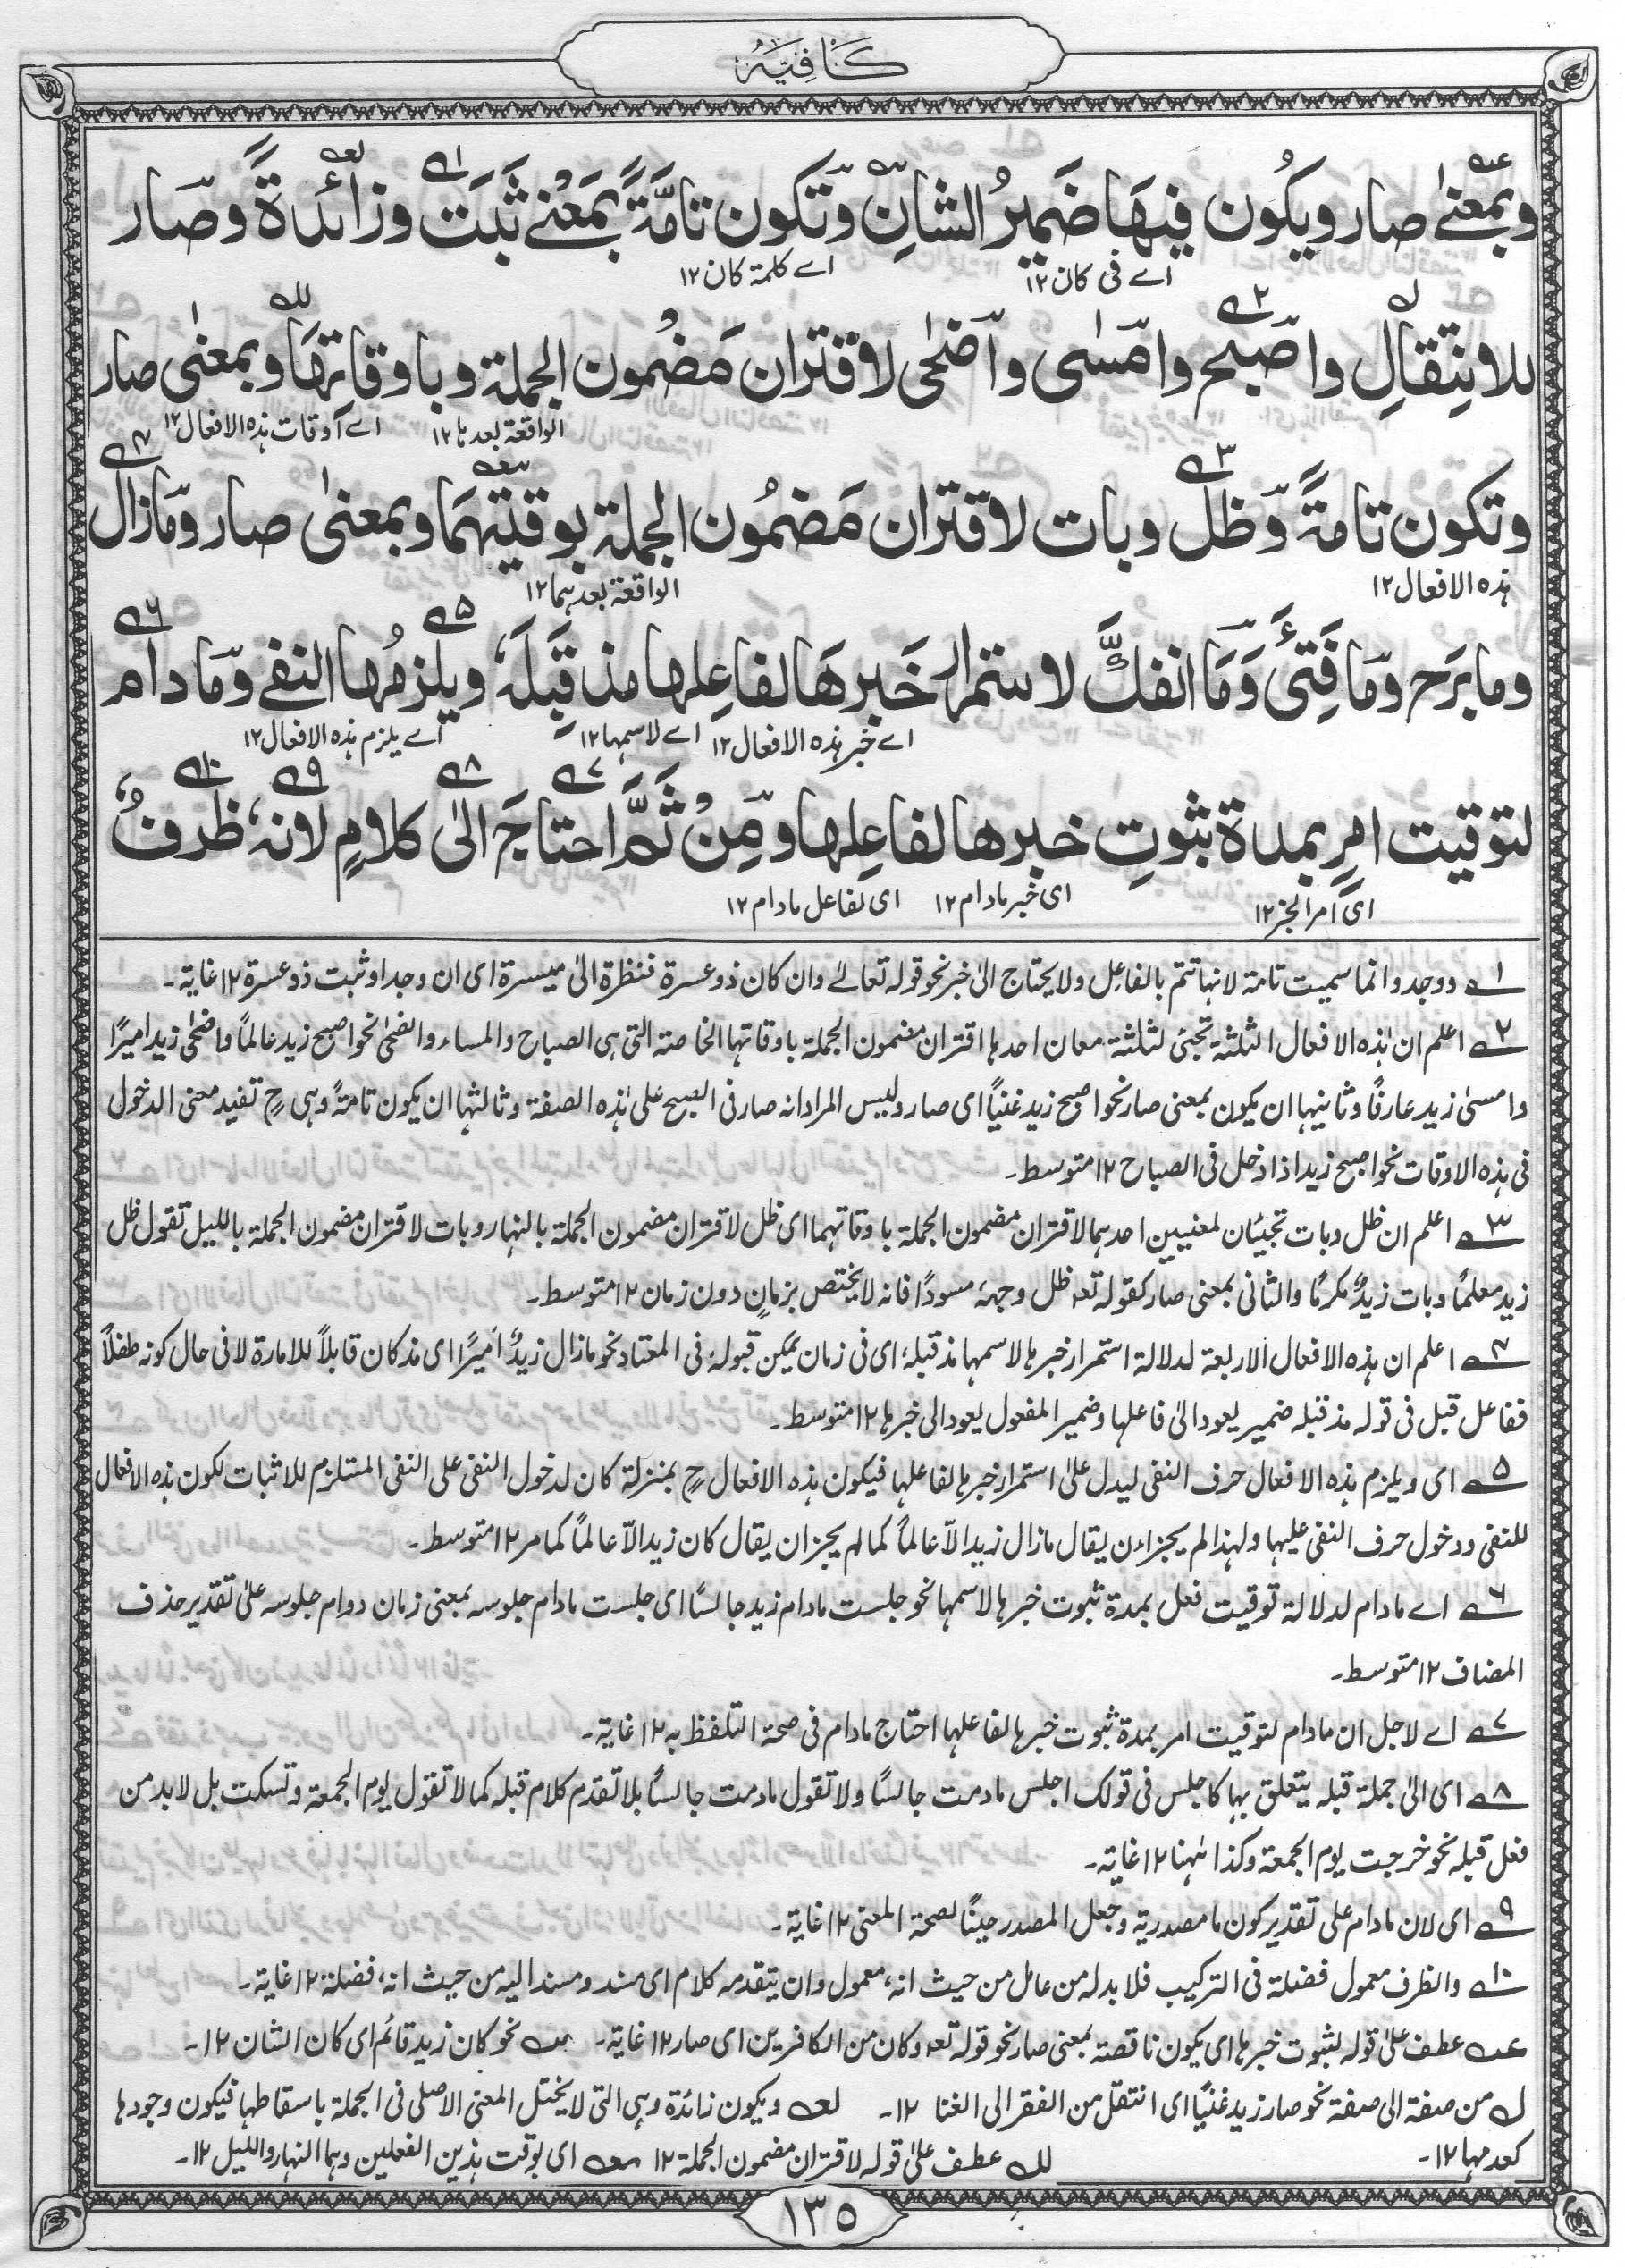 كَافِيَه
وبمعنىٰ صار ويكُون فيهَا ضَميرُ الشانِ وّتكون تامَّةً بمَعْنٰے ثَبَتَ وزَائدةً وصَار
اے فی کان ١٢ اے کلمۃ کان ١٢
للانتِقالِ واصّبح وامّسٰى واضّحٰى لاقتران مَضمُون الجملة وباوقاتهَا وبمعنٰى صار
الواقعۃ بعدہا ١٢ اے اوقات ہذہ الافعال ١٢
وتكون تامةً وّظلّ وبات لاقتران مَضمُون الجملة بوقتيهمَا وبمعنىٰ صار ومَازال
ہذہ الافعال ١٢ الواقعۃ بعدہما ١٢
وما بَرَح ومَا فَتِئَ وَمَا انفكَّ لاستمرار خَبرهَا لفاعِلها مذ قَبِلَهٗ ويلزمُها النفى ومَا دام
اے خبر ہذہ الافعال ١٢ اے لاسمہا ١٢ اے یلزم ہذہ الافعال ١٢
لتوقيت امرٍ بمدة ثبوتِ خبرها لفاعِلها ومِنْ ثَمَّ احتاجَ الىٰ كلامٍ لانهٗ ظرفٌ
ای امر الخبر ١٢ ای خبر مادام ١٢ ای لفاعل مادام ١٢
١ ووجد وانما سمیت تامۃ لانہا تتم بالفاعل ولا یحتاج الیٰ خبر نحو قولہ تعالےٰ وان کان ذو عسرۃ فنظرۃ الیٰ میسرۃ ای ان وجد او ثبت ذو عسرۃ ١٢ غایۃ۔
٢ اعلم ان ہٰذہ الافعال الثلثۃ تجئ لثلثۃ معان احدہا اقتران مضمون الجملۃ باوقاتہا الخاصۃ التی ہی الصباح والمساء والضحیٰ نحو اصبح زید عالماً واضحٰی زید امیرًا
وامسیٰ زید عارفًا وثانیہا ان یکون بمعنی صار نحو اصبح زید غنیاً ای صار ولیس المراد انہ صار فی الصبح علیٰ ہٰذہ الصفۃ وثالثہا ان یکون تامۃً وہی ح تفید معنی الدخول
فی ہذہ الاوقات نحو اصبح زید اذا دخل فی الصباح ١٢ متوسط۔
٣ اعلم ان ظل وبات تجیئان لمعنیین احدہما لاقتران مضمون الجملۃ باوقاتہما ای ظل لاقتران مضمون الجملۃ بالنہار وبات لاقتران مضمون الجملۃ باللیل تقول ظل
زید معلمًا وبات زیدٌ مکرمًا والثانی بمعنی صار کقولہ تعہ ظل وجہہٗ مسودًا فانہ لا یختص بزمانٍ دون زمان ١٢ متوسط۔
٤ اعلم ان ہذہ الافعال الاربعۃ لدلالۃ استمرار خبرہا لاسمہا مذ قبلہٗ ای فی زمان یمکن قبولہٗ فی المعتاد نحو مازال زیدٌ امیرًا ای مذ کان قابلاً للامارۃ لا فی حال کونہ طفلاً
ففاعل قبل فی قولہ مذ قبلہ ضمیر یعود الیٰ فاعلہا وضمیر المفعول یعود الی خبرہا ١٢ متوسط۔
٥ ای ویلزم ہذہ الافعال حرف النفی لیدل علیٰ استمرار خبرہا لفاعلہا فیکون ہذہ الافعال ح بمنزلۃ کان لدخول النفی علی النفی المستلزم للاثبات لکون ہذہ الافعال
للنفی ودخول حرف النفی علیہا ولہذا لم یجز ان یقال مازال زید الاّ عالماً کما لم یجز ان یقال کان زید الاّ عالماً کما مر ١٢ متوسط۔
٦ اے مادام لدلالۃ توقیت فعل بمدۃ ثبوت خبرہا لاسمہا نحو جلست مادام زید جالسًا ای جلست مادام جلوسہ بمعنی زمان دوام جلوسہ علیٰ تقدیر حذف
المضاف ١٢ متوسط۔
٧ اے لاجل ان مادام لتوقیت امر بمدۃ ثبوت خبرہا لفاعلہا احتاج مادام فی صحۃ التلفظ بہ ١٢ غایۃ۔
٨ ای الیٰ جملۃ قبلہ یتعلق بہا کاجلس فی قولک اجلس مادمت جالسًا ولا تقول مادمت جالسًا بلا تقدم کلام قبلہ کما لا تقول یوم الجمعۃ وتسکت بل لا بد من
فعل قبلہ نحو خرجت یوم الجمعۃ وکذا ہٰہنا ١٢ غایۃ۔
٩ ای لان مادام علی تقدیر کون ما مصدریۃ وجعل المصدر حینًا لصحۃ المعنی ١٢ غایۃ۔
١٠ والظرف معمول فضلۃ فی الترکیب فلا بد لہ من عامل من حیث انہٗ معمول وان یتقدمہ کلام ای مسند ومسند الیہ من حیث انہٗ فضلۃ ١٢ غایۃ۔
عہ عطف علیٰ قولہ لثبوت خبرہا ای یکون ناقصۃ بمعنی صار نحو قولہ تعہ وکان من الکافرین ای صار ١٢ غایۃ۔ سہ نحو کان زید قائم ای کان الشان ١٢۔
لہ من صفۃ الی صفۃ نحو صار زید غنیًا ای انتقل من الفقر الی الغنا ١٢۔ لعہ ویکون زائدۃ وہی التی لا یختل المعنی الاصلی فی الجملۃ باسقاطہا فیکون وجودہا
کعدمہا ١٢۔ للہ عطف علیٰ قولہ لاقتران مضمون الجملۃ ١٢ سعہ ای بوقت ہذین الفعلین وہما النہار واللیل ١٢۔
١٣٥